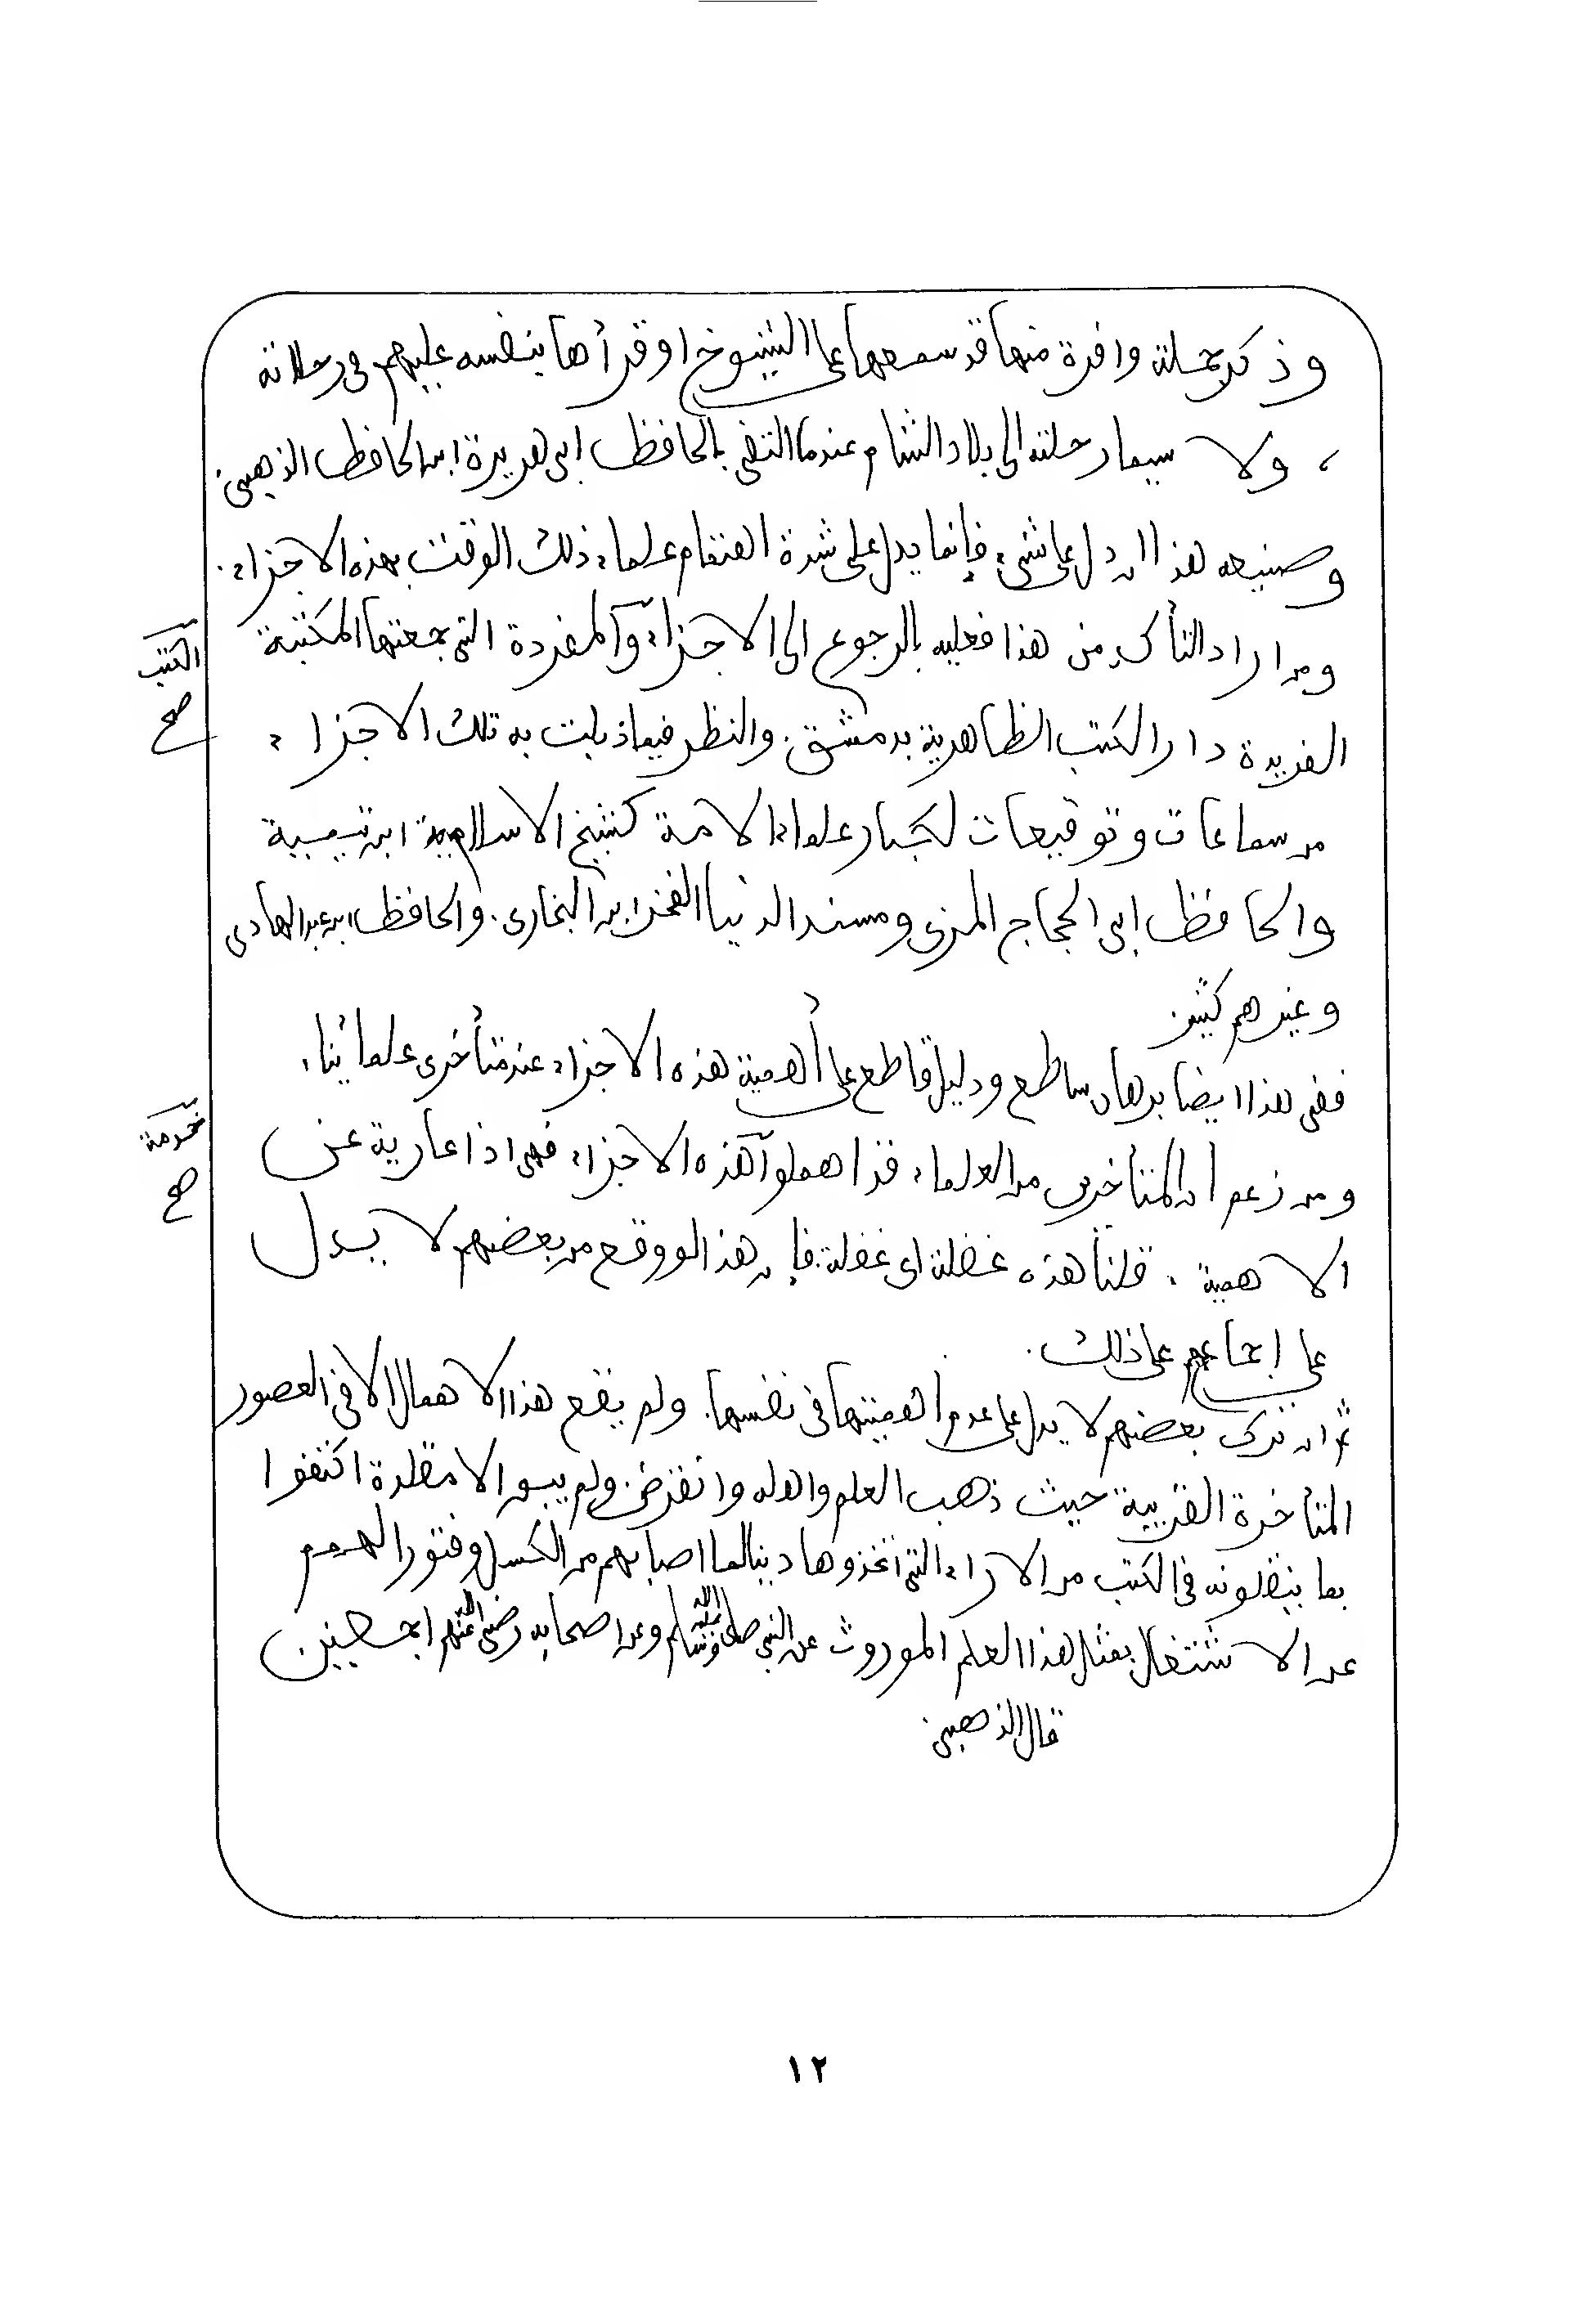 وذكر جملة وافرة منها قد سمعها على الشيوخ او قرأها بنفسه عليهم في رحلاته
، ولا سيما رحلته الى بلاد الشام عندما التقى بالحافظ ابى هريرة ابن الحافظ الذهبي.
وصنيعه هذا ان دل على شيء فإنما يدل على شدة اهتمام علماء ذلك الوقت بهذه الاجزاء.
ومن اراد التأكد من هذا فعليه بالرجوع الى الاجزاء والمفردة التي جمعتها المكتبة
الكتب
صح
الفريدة دار الكتب الظاهرية بدمشق. والنظر فيما ذيلت به تلك الاجزاء
من سماعات وتوقيعات لكبار علماء الامة كشيخ الاسلام ابن تيمية
والحافظ ابى الحجاج المزى ومسند الدنيا الفخر ابن البخارى. والحافظ ابن عبد الهادى
وغيرهم كثير.
ففى هذا ايضا برهان ساطع ودليل قاطع على أهمية هذه الاجزاء عند متأخرى علمائنا،
خدمة
صح
ومن زعم أن المتأخرين من العلماء قد اهملوا هذه الاجزاء فهى اذا عارية عن
الاهمية. قلنا هذه غفلة اى غفلة. فإن هذا لو وقع من بعضهم لا يدل
على اجماعهم على ذلك.
ثم ان ترك بعضهم لا يدل على عدم اهميتها فى نفسها. ولم يقع هذا الاهمال الا فى العصور
المتأخرة القريبة حيث ذهب العلم واهله وانقرض. ولم يبق الا مقلدة اكتفوا
بما ينقلونه فى الكتب من الاراء التى اتخذوها دينا لما اصابهم من الكسل وفتور الهمم
عن الاشتغال بمثل هذا العلم الموروث عن النبى صلى الله عليه وسلم وعن اصحابه رضى الله عنهم اجمعين
قال الذهبي
١٢